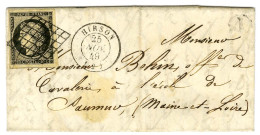 HIRSON
25
NOV.
49
Monsieur
Monsieur Bohin off. de
Cavalerie à l'école de
Saumur (Maine-et-Loire)